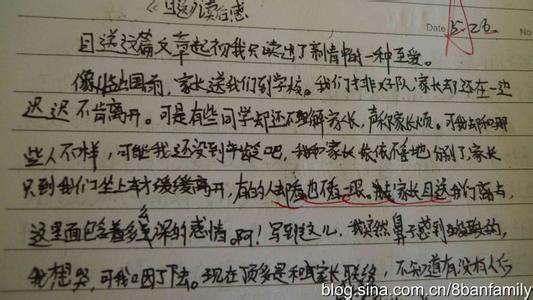 《目送》读后感
Date 5.26 No
目送这篇文章起初我只读出了亲情中的一种至爱。
像出国前，家长送我们到学校。我们才排好队，家长却还在一边
迟迟不肯离开。可是有些同学却还不理解家长，声称家长烦。可我却和那
些人不一样，可能我还没到年龄吧，我和家长依依不舍地分别了，家长
只到我们坐上车才缓缓离开，有的人却看也不看一眼。家长目送我们离去，
这里面包含着多么深的感情。啊！写到这儿，我突然鼻子感到酸酸的，
我想哭，可我咽了下去。现在顶多是和家长联络，不知道有没有人
blog.sina.com.cn/8banfamily